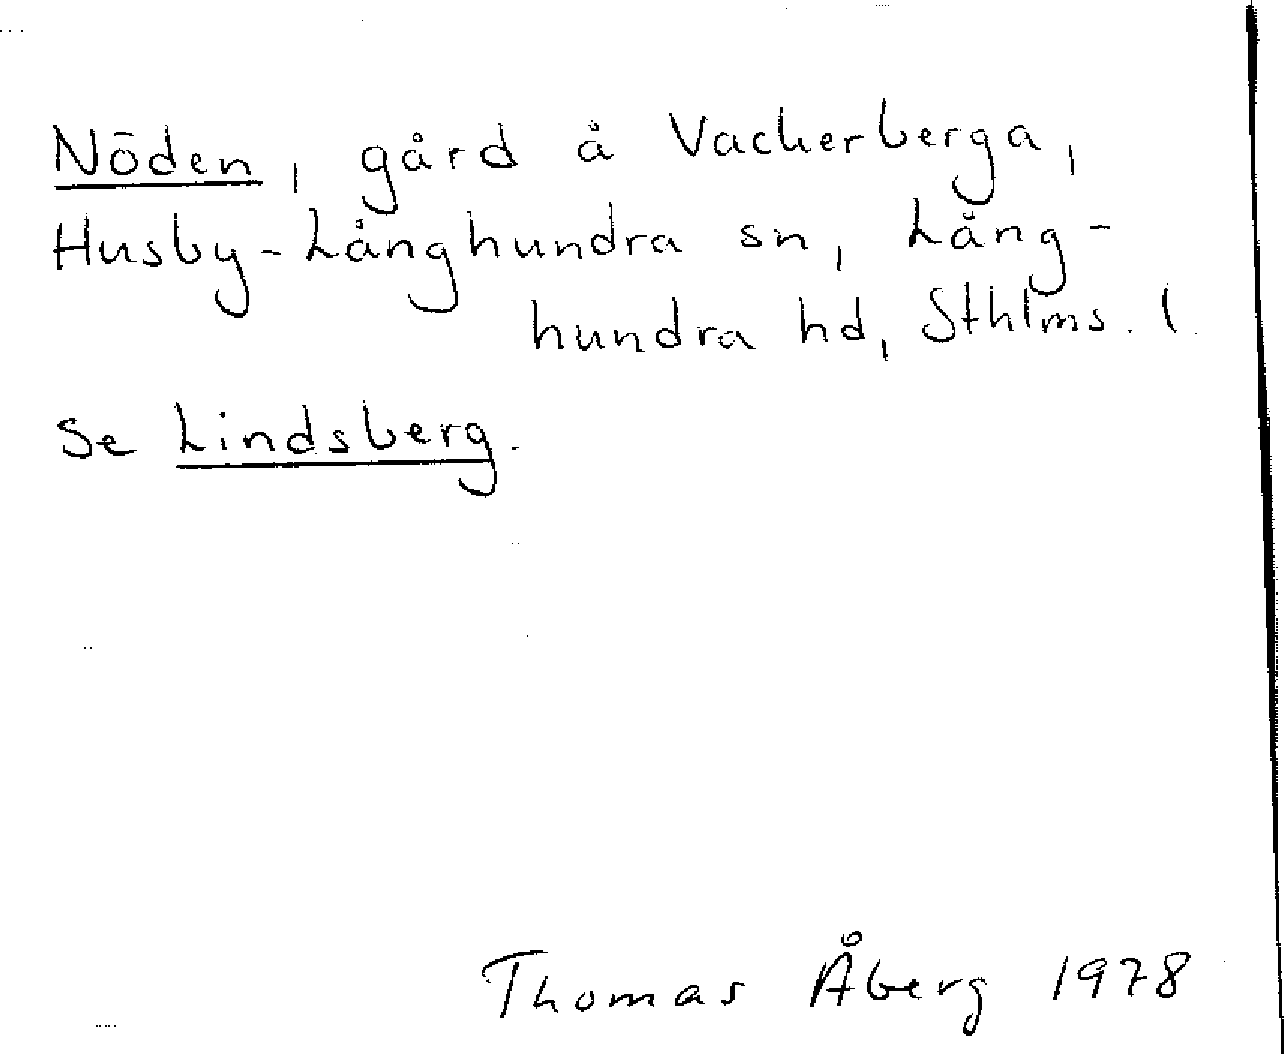 Nöden, gård å Vackerberga,
Husby-Långhundra sn, Lång-
hundra hd, Sthlms. l.
Se Lindsberg.
Thomas Åberg 1978